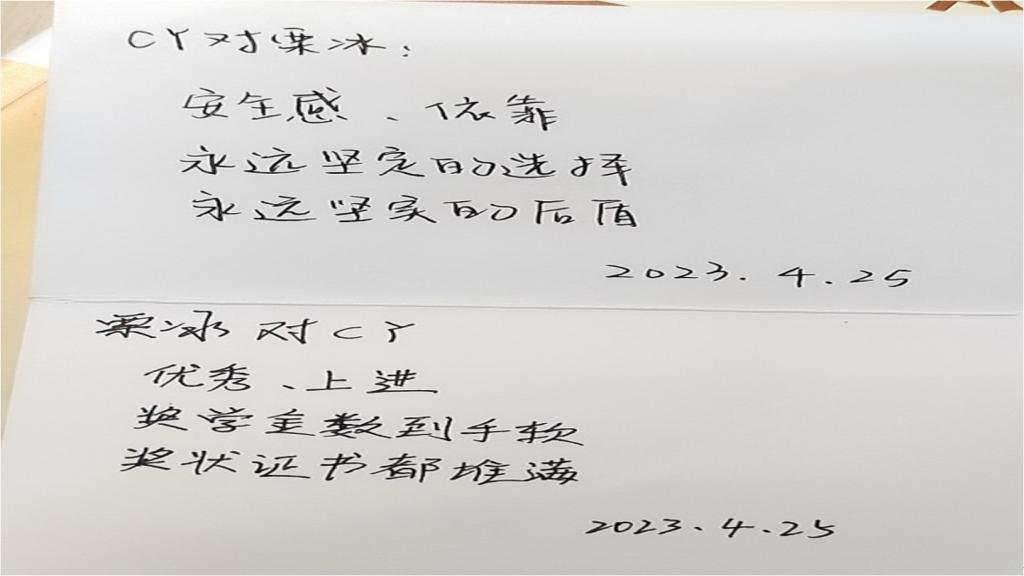 CY对栗冰：
安全感、依靠
永远坚定的选择
永远坚实的后盾
2023.4.25
栗冰对CY
优秀、上进
奖学金数到手软
奖状证书都堆满
2023.4.25